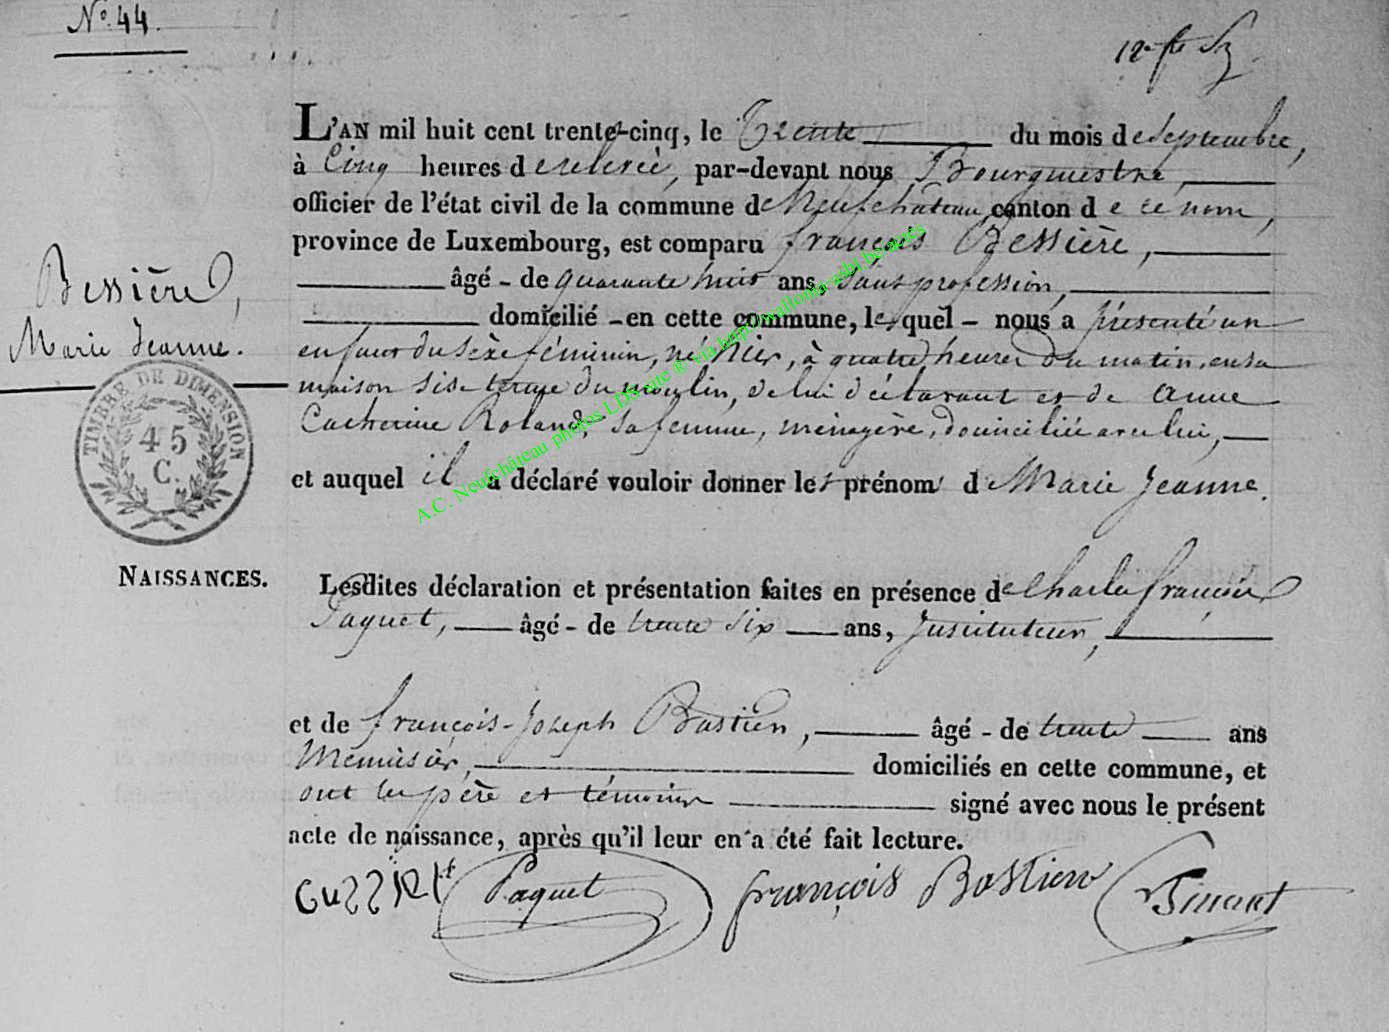 N.º 44.
L'AN mil huit cent trente-cinq, le Trente du mois de septembre,
à Cinq heures de relevée, par-devant nous Bourgmestre,
officier de l'état civil de la commune de Neufchâteau, canton de ce nom,
province de Luxembourg, est comparu françois Bessière,
âgé - de quarante huit ans, sans profession,
domicilié - en cette commune, lequel - nous a présenté un
enfant du sèxe féminin, né hier, à quatre heures du matin, en sa
maison sise terme du moulin, de lui déclarant et de Anne
Catherine Roland, sa femme, ménagère, domiciliée avec lui,
et auquel il a déclaré vouloir donner les prénoms de Marie Jeanne.
Bessière,
Marie Jeanne.
TIMBRE DE DIMENSION
45
C.
NAISSANCES.
Lesdites déclaration et présentation faites en présence de Charles françois
Paquet, âgé - de trente six ans, Instituteur,
et de françois-Joseph Bastien, âgé - de trente ans
Menuisier, domiciliés en cette commune, et
ont les père et témoins signé avec nous le présent
acte de naissance, après qu'il leur en a été fait lecture.
Paquet françois Bastien
A.C. Neufchâteau photos LDS site ® via http://wallonia-asbl.be/actes